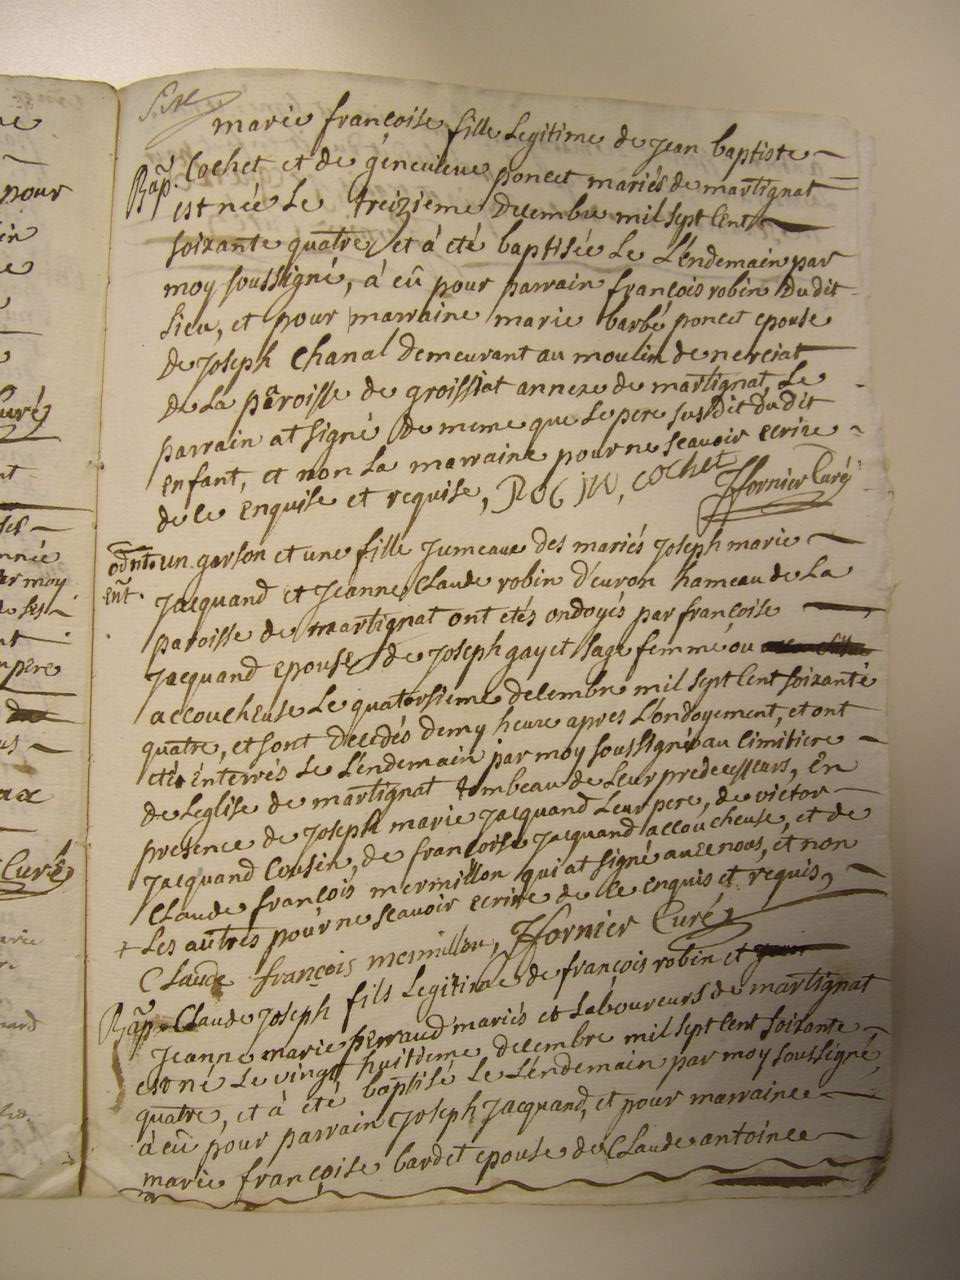 marie françoise fille Legitime de jean baptiste
Bap. Cochet et de géneuieue poncet mariés de martignat
est née Le treizieme decembre mil sept Cent
soixante quatre, et à été baptisée Le L'endemain par
moy soussigné, à eû pour parrain françois robin du dit
Lieu, et pour marraine marie barbé poncet epouse
de Joseph Chanal demeurant au moulin de nerciat
de La paroisse de groissiat annexe de martignat, Le
parrain at signé de meme que Le pere susdit du dit
enfant, et non La marraine pour ne scauoir ecrire
de ce enquise et requise, Robin, cochet fornier Curé
ondnt. un garson et une fille Jumeaue des mariés Joseph marie
ent. Jacquand et Jeanne Claude robin d'euron hameau de La
paroisse de martignat ont etés ondoyés par françoise
Jacquand epouse de Joseph gayet sage femme ou
accoucheuse Le quatorsieme decembre mil sept Cent soixante
quatre, et sont decedés demy heure apres L'ondoyement, et ont
etés enterrés Le L'endemain par moy soussigné au cimitiere
de Leglise de martignat tombeau de Leur predecesseurs, en
presence de Joseph marie Jacquand Leur pere, de victor
Jacquand Cousin, de françoise Jacquand accoucheuse, et de
Claude françois mermillon qui at signé auec nous, et non
+ Les autres pour ne scauoir ecrire de ce enquis et requis,
Claude françois mermillon, fornier Curé
Bap. Claude Joseph fils Legitime de françois robin et
Jeanne marie perraud mariés et Laboureurs de martignat
est né Le vingt huitieme decembre mil sept Cent soixante
quatre, et à été baptisé Le L'endemain par moy soussigné,
à eû pour parrain Joseph Jacquand, et pour marraine
marie françoise bardet epouse de Claude antoine